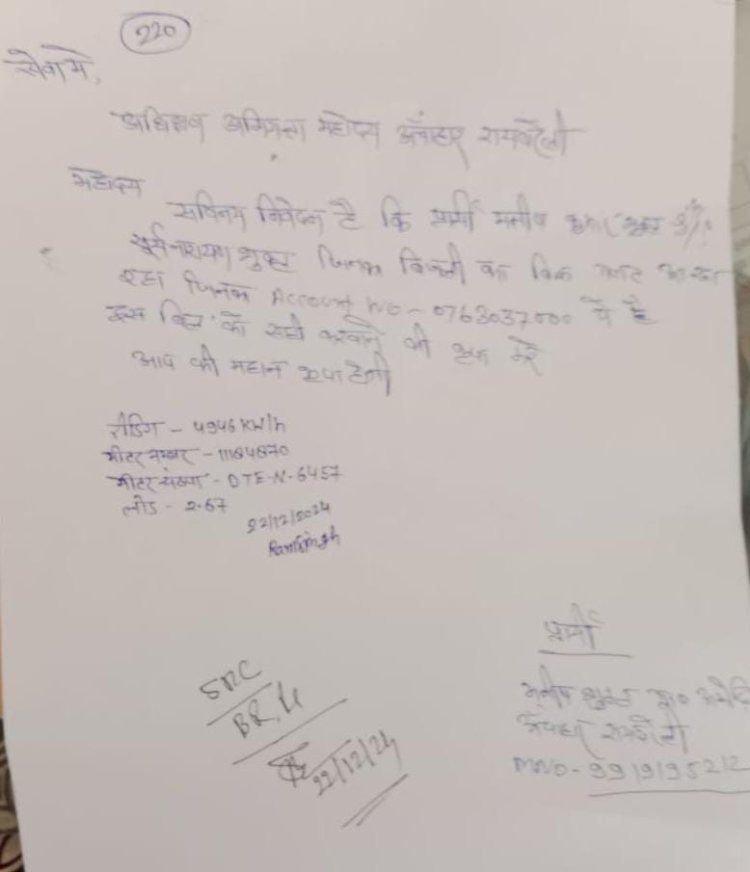 220
सेवा में,
अधिशाषी अभियन्ता महोदय ऊँचाहार रायबरेली
महोदय
सविनय निवेदन है कि प्रार्थी मनीष कुमार शुक्ल S/o
सूर्यनारायण शुक्ल जिनका बिजली का बिल गलत आ रहा
जिनका Account No - 0763037000 ये है
इस बिल को सही करवाने की कृपा करें
आप की महान कृपा होगी
रीडिंग - 4946 KW/h
मीटर नम्बर - 11184870
मीटर संख्या - DTE-N-6457
लोड - 2.67
22/12/2024
Ramsingh
प्रार्थी
SRC
BR.
22/12/24
मनीष शुक्ल
ऊँचाहार रायबरेली
MNO - 9919195212